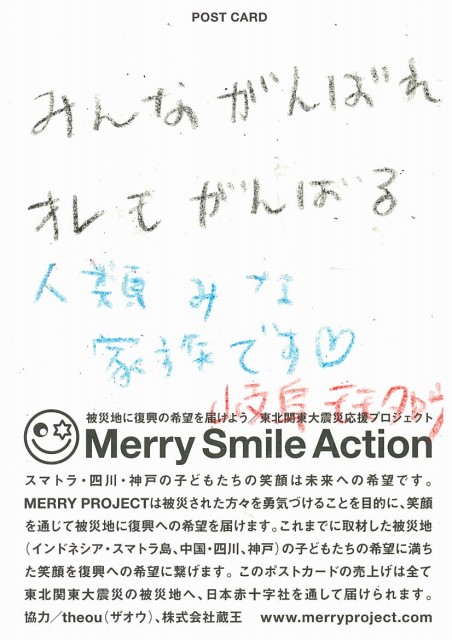 POST CARD
みんながんばれ
オレもがんばる
人類みな
家族です♡
岐阜
被災地に復興の希望を届けよう／東北関東大震災応援プロジェクト
Merry Smile Action
スマトラ・四川・神戸の子どもたちの笑顔は未来への希望です。
MERRY PROJECTは被災された方々を勇気づけることを目的に、笑顔
を通じて被災地に復興への希望を届けます。これまでに取材した被災地
（インドネシア・スマトラ島、中国・四川、神戸）の子どもたちの希望に満ち
た笑顔を復興への希望に繋げます。このポストカードの売上げは全て
東北関東大震災の被災地へ、日本赤十字社を通して届けられます。
協力／theou（ザオウ）、株式会社蔵王 www.merryproject.com